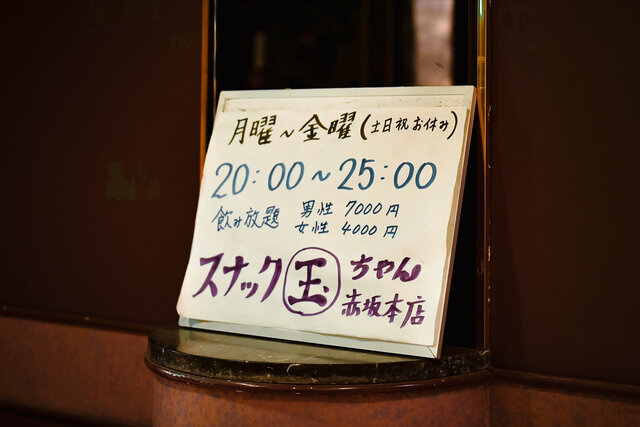 月曜～金曜(土日祝お休み)
20:00～25:00
飲み放題 男性 7000円
女性 4000円
スナック玉ちゃん
赤坂本店